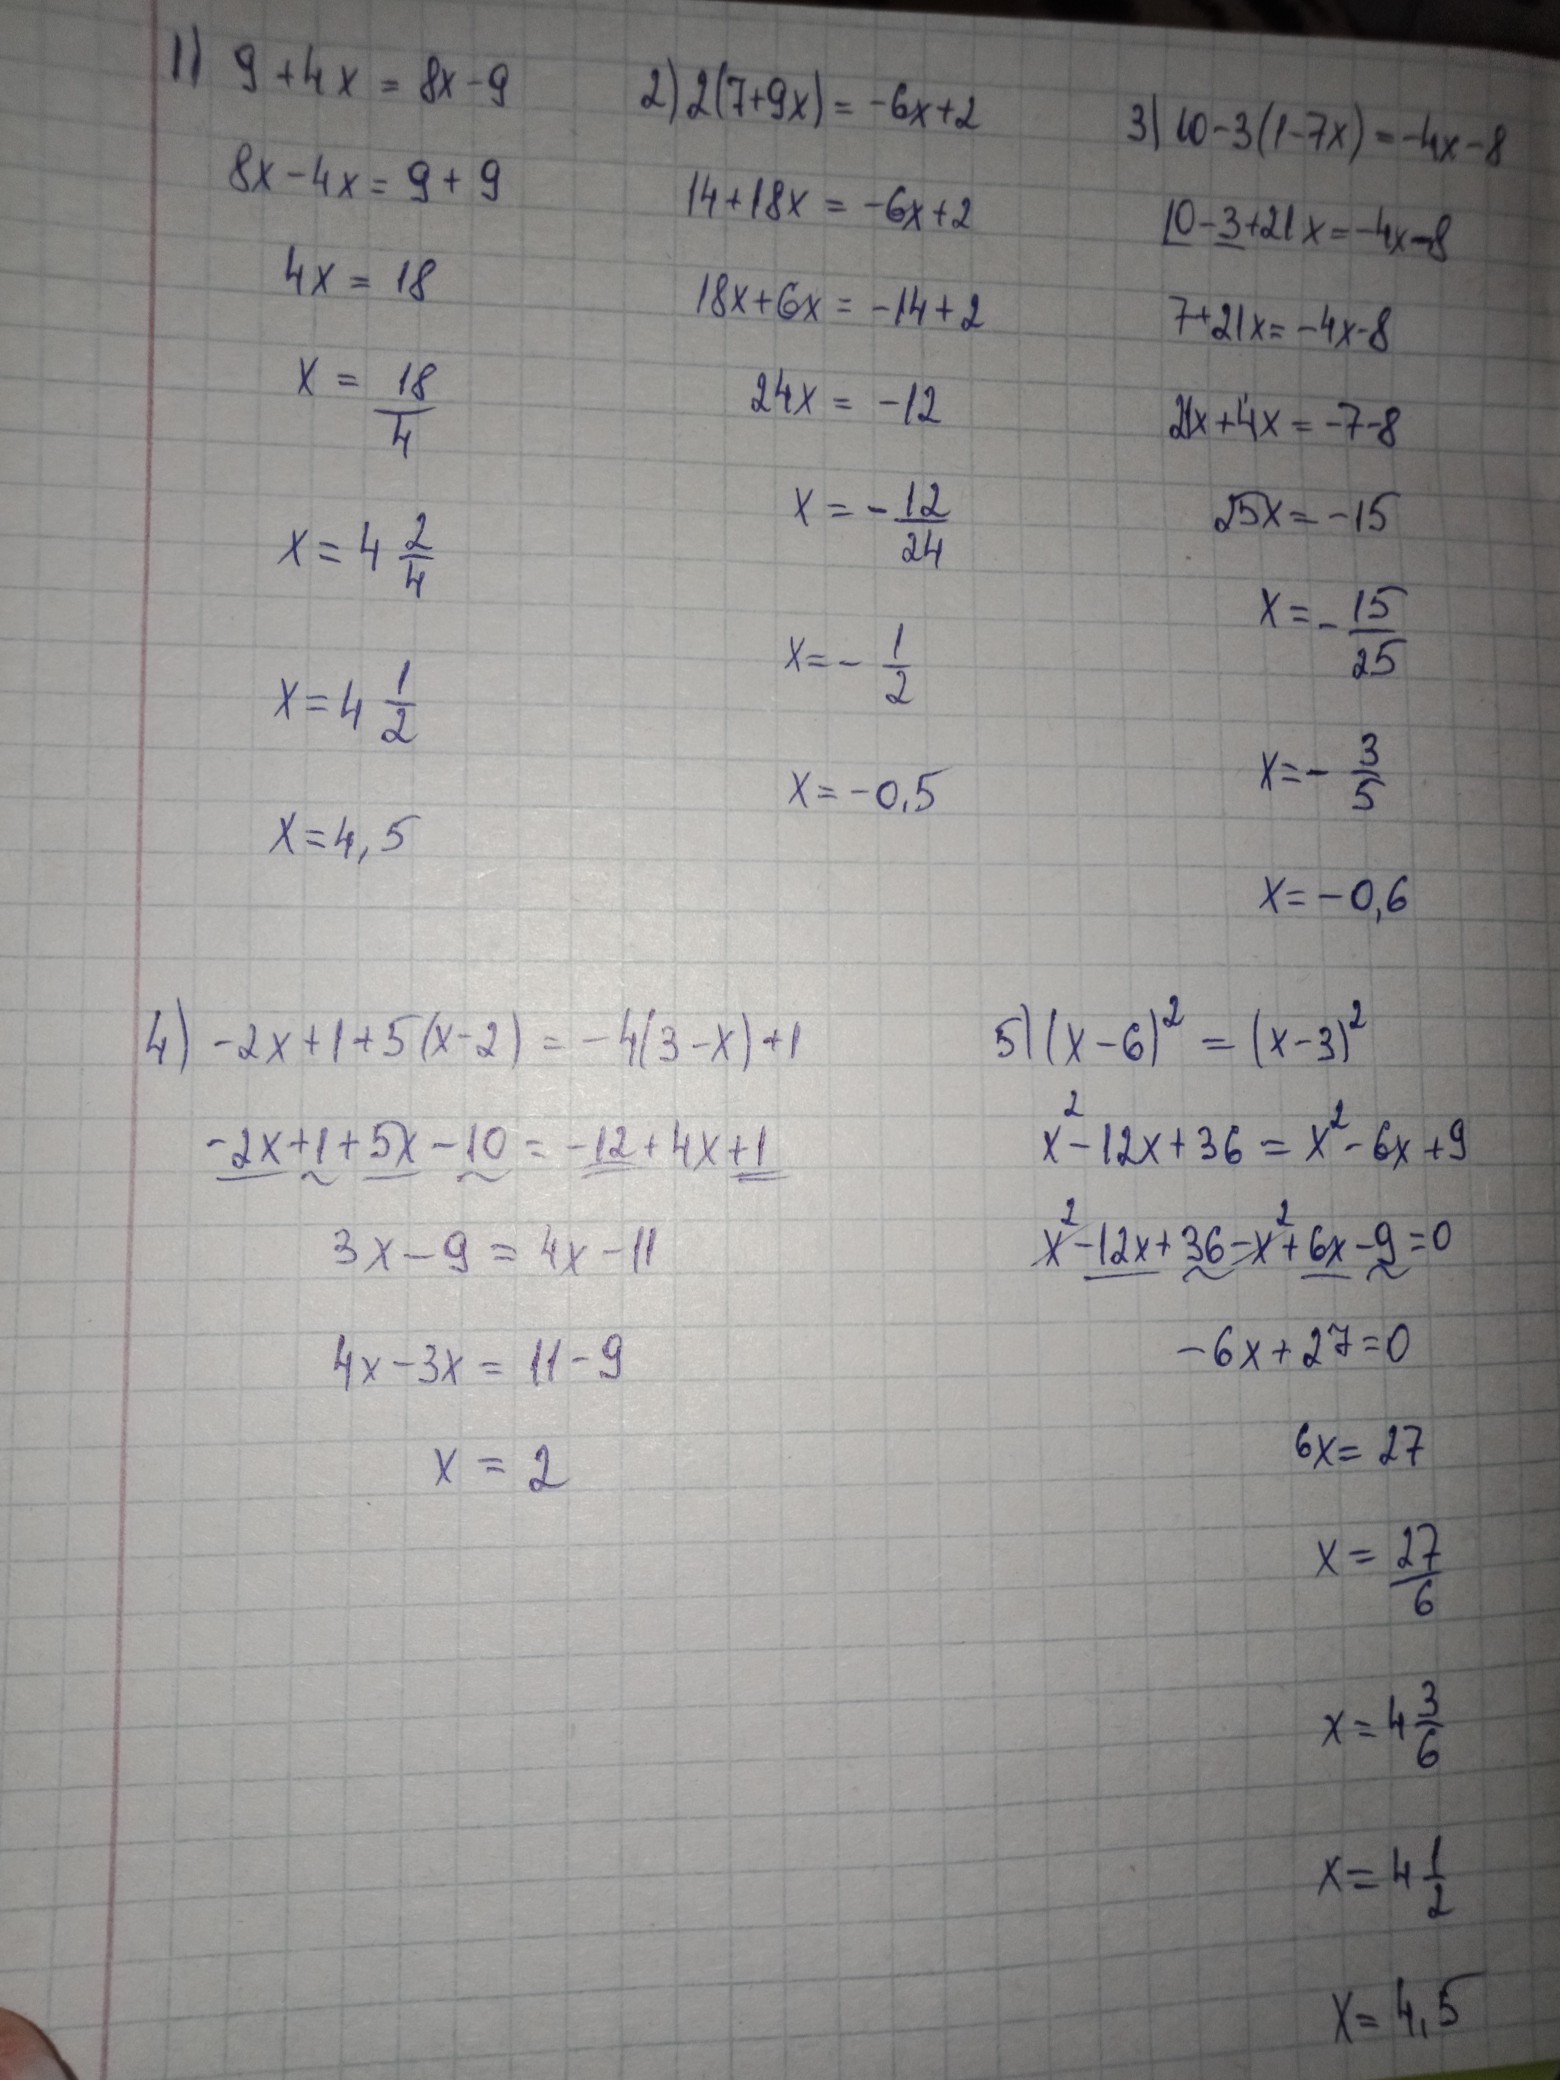 1) 9+4x=8x-9
8x-4x=9+9
4x=18
x=18/4
x=4 2/4
x=4 1/2
x=4,5
2) 2(7+9x)=-6x+2
14+18x=-6x+2
18x+6x=-14+2
24x=-12
x=-12/24
x=-1/2
x=-0,5
3) 10-3(1-7x)=-4x-8
10-3+21x=-4x-8
7+21x=-4x-8
21x+4x=-7-8
25x=-15
x=-15/25
x=-3/5
x=-0,6
4) -2x+1+5(x-2)=-4(3-x)+1
-2x+1+5x-10=-12+4x+1
3x-9=4x-11
4x-3x=11-9
x=2
5) (x-6)²=(x-3)²
x²-12x+36=x²-6x+9
x²-12x+36-x²+6x-9=0
-6x+27=0
6x=27
x=27/6
x=4 3/6
x=4 1/2
x=4,5